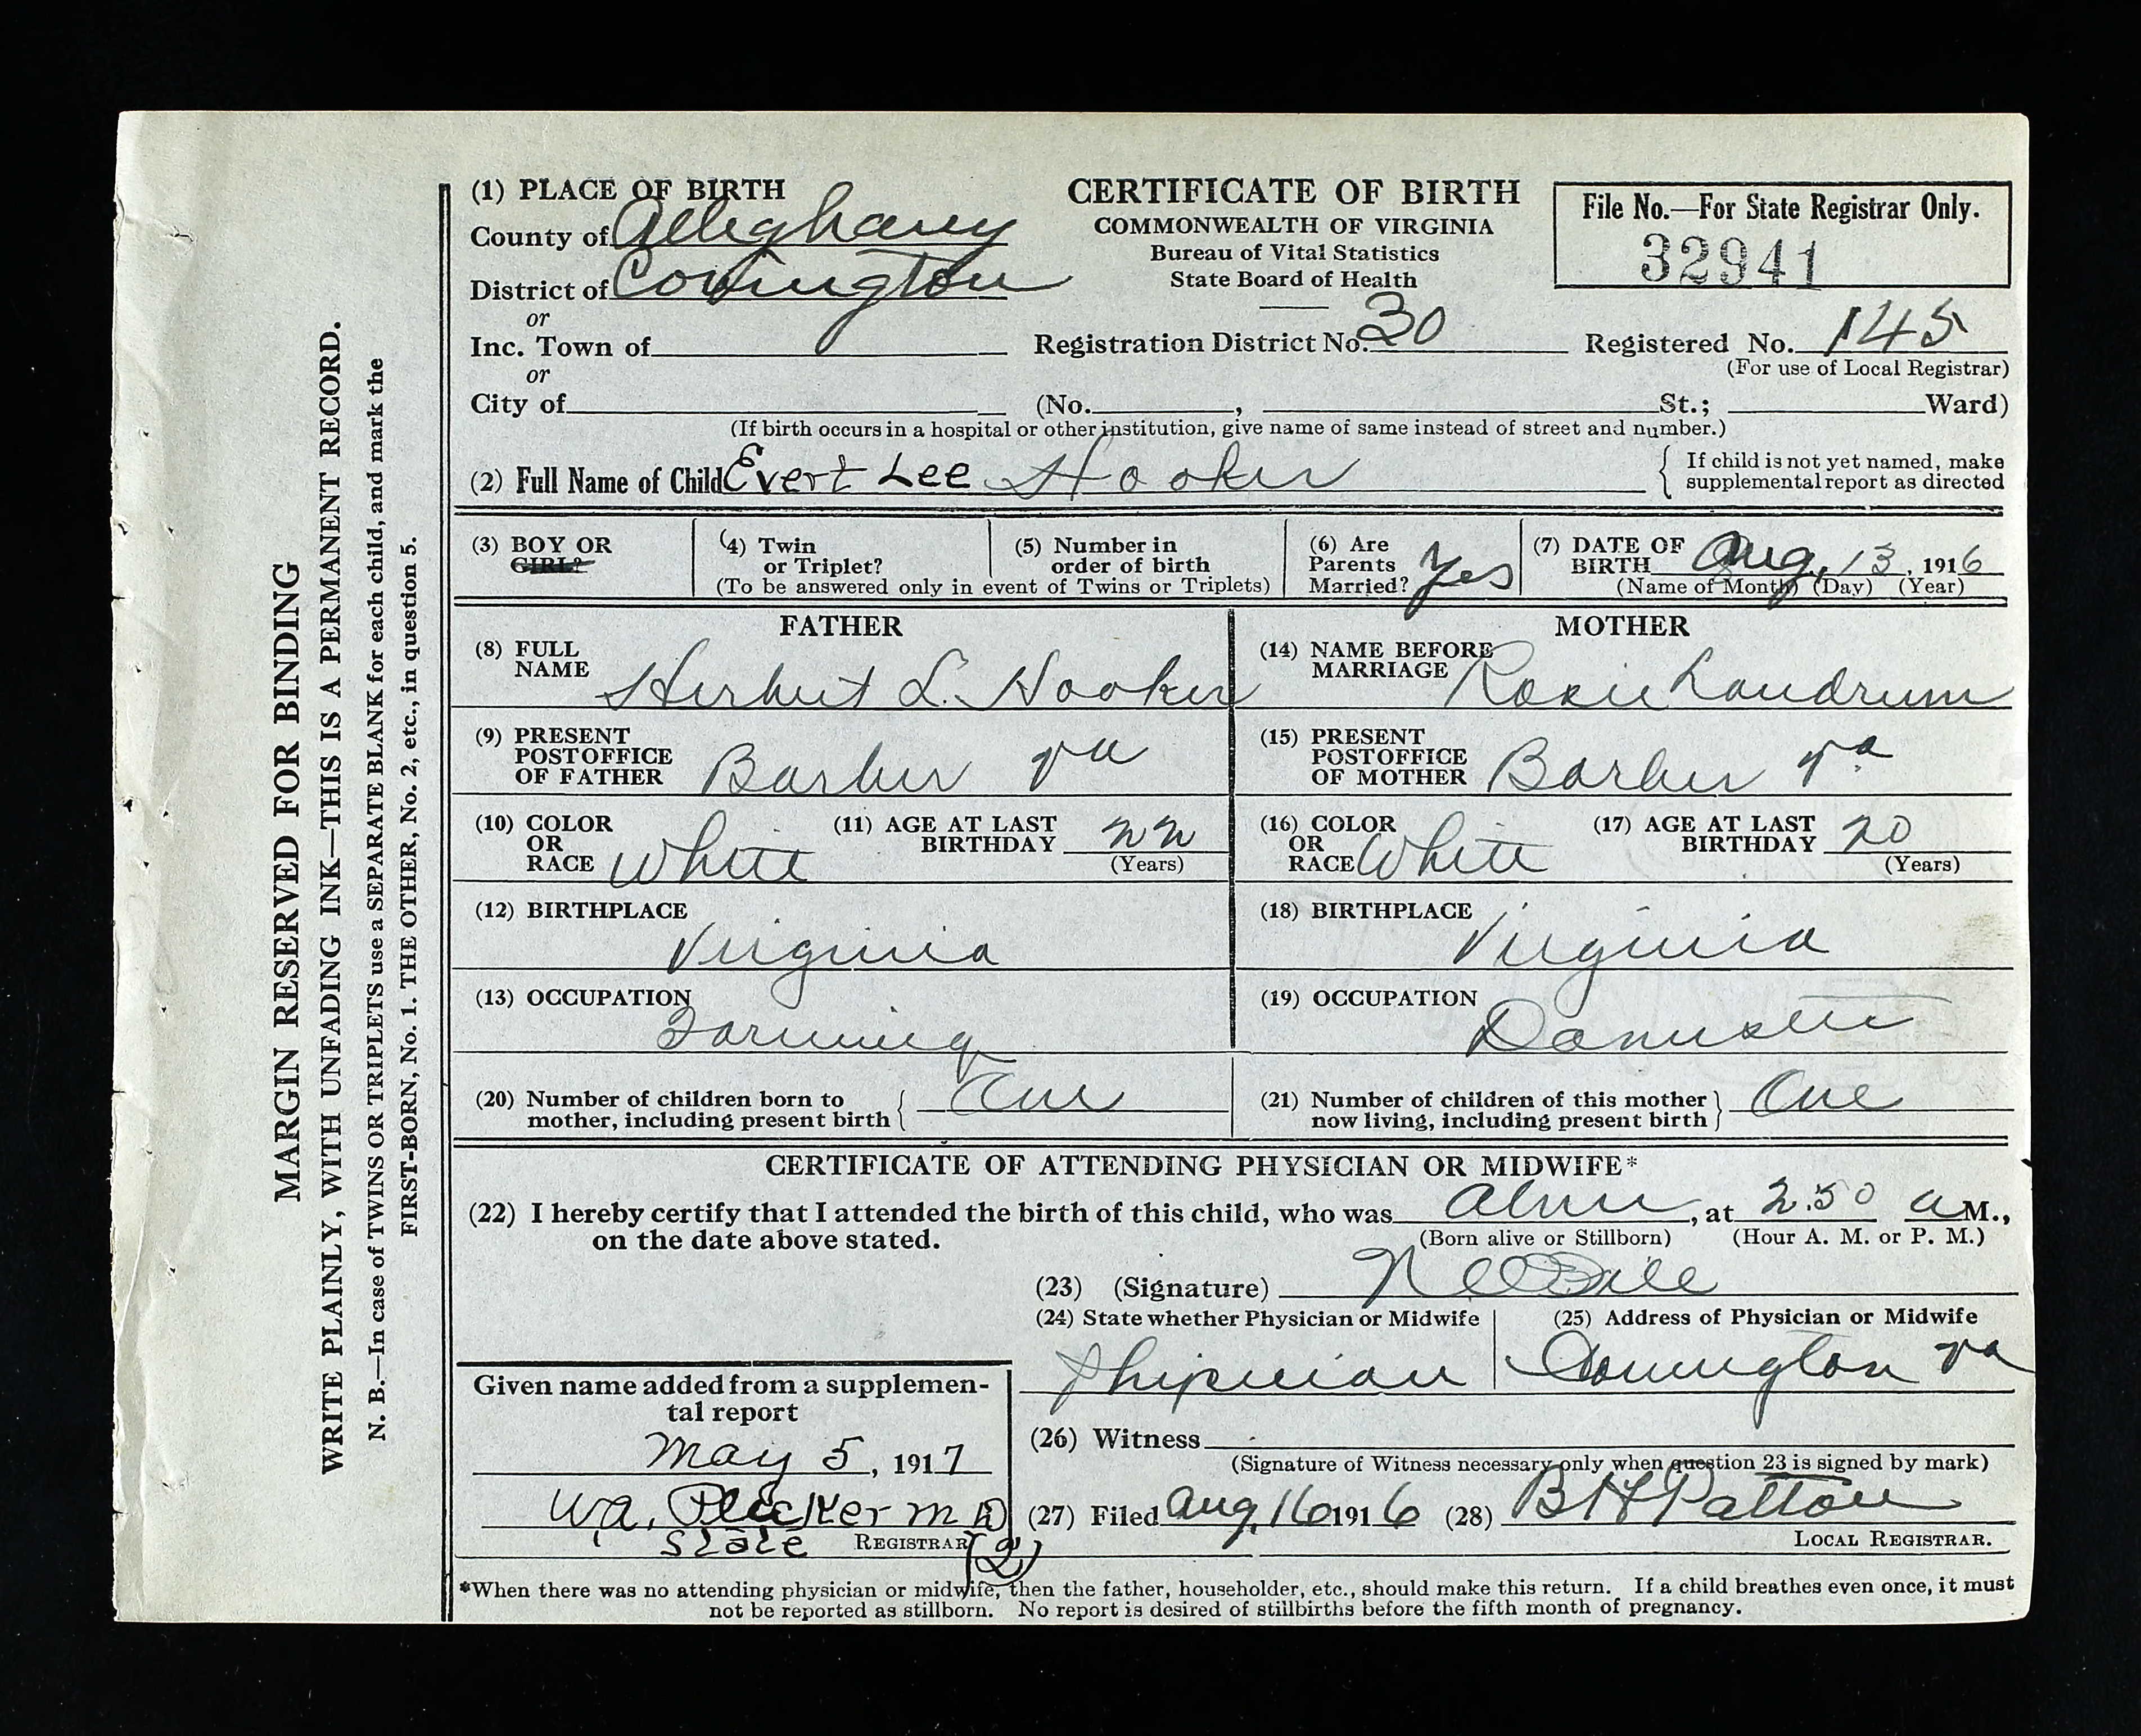 MARGIN RESERVED FOR BINDING
WRITE PLAINLY, WITH UNFADING INK—THIS IS A PERMANENT RECORD.
N. B.—In case of TWINS OR TRIPLETS use a SEPARATE BLANK for each child, and mark the
FIRST-BORN, No. 1. THE OTHER, No. 2, etc., in question 5.
(1) PLACE OF BIRTH
County of Alleghany
District of Covington
or
Inc. Town of
or
City of
CERTIFICATE OF BIRTH
COMMONWEALTH OF VIRGINIA
Bureau of Vital Statistics
State Board of Health
File No.—For State Registrar Only.
32941
Registration District No. 30
Registered No. 145
(For use of Local Registrar)
(No. , St.; Ward)
(If birth occurs in a hospital or other institution, give name of same instead of street and number.)
(2) Full Name of Child Evert Lee Hooker
If child is not yet named, make
supplemental report as directed
(3) BOY OR
GIRL?
(4) Twin
or Triplet?
(5) Number in
order of birth
(To be answered only in event of Twins or Triplets)
(6) Are
Parents
Married? Yes
(7) DATE OF
BIRTH Aug. 13, 1916
(Name of Month) (Day) (Year)
FATHER
(8) FULL
NAME Herbert L. Hooker
(9) PRESENT
POSTOFFICE
OF FATHER Barber Va
(10) COLOR
OR
RACE White
(11) AGE AT LAST
BIRTHDAY 22
(Years)
(12) BIRTHPLACE
Virginia
(13) OCCUPATION
Farming
MOTHER
(14) NAME BEFORE
MARRIAGE Roxie Landrum
(15) PRESENT
POSTOFFICE
OF MOTHER Barber Va
(16) COLOR
OR
RACE White
(17) AGE AT LAST
BIRTHDAY 20
(Years)
(18) BIRTHPLACE
Virginia
(19) OCCUPATION
Domestic
(20) Number of children born to
mother, including present birth One
(21) Number of children of this mother
now living, including present birth One
CERTIFICATE OF ATTENDING PHYSICIAN OR MIDWIFE*
(22) I hereby certify that I attended the birth of this child, who was Alive, at 2.50 a M.,
on the date above stated.
(Born alive or Stillborn) (Hour A. M. or P. M.)
(23) (Signature)
(24) State whether Physician or Midwife
Physician
(25) Address of Physician or Midwife
Covington Va
(26) Witness
(Signature of Witness necessary only when question 23 is signed by mark)
(27) Filed Aug. 16 1916 (28) B H Patton
LOCAL REGISTRAR.
Given name added from a supplemen-
tal report
May 5, 1917
W.A. Plecker M D
State REGISTRAR
(2)
*When there was no attending physician or midwife, then the father, householder, etc., should make this return. If a child breathes even once, it must
not be reported as stillborn. No report is desired of stillbirths before the fifth month of pregnancy.